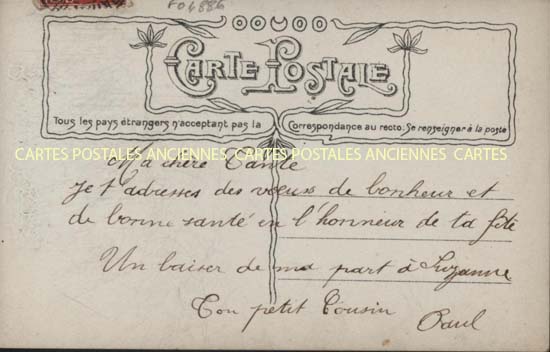 F04886
CARTE POSTALE
Tous les pays étrangers n'acceptant pas la Correspondance au recto: Se renseigner à la poste
CARTES POSTALES ANCIENNES CARTES POSTALES ANCIENNES CARTES
Ma chère Tante
Je t'adresses des voeux de bonheur et
de bonne santé en l'honneur de ta fête
Un baiser de ma part à Suzanne
Ton petit Cousin
Paul